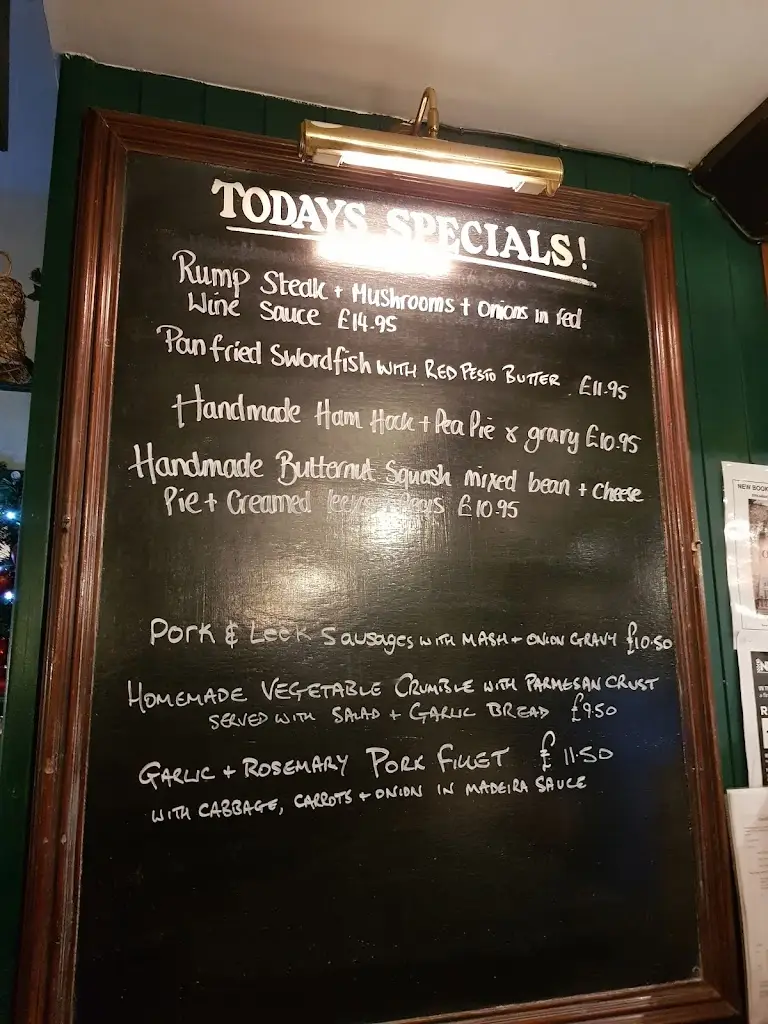 TODAYS SPECIALS!
Rump Steak + Mushrooms + Onions in red
Wine Sauce £14.95
Pan fried Swordfish WITH RED PESTO BUTTER £11.95
Handmade Ham Hock + Pea Pie & gravy £10.95
Handmade Butternut Squash mixed bean + cheese
Pie + Creamed leeks + Peas £10.95
Pork & Leek Sausages WITH MASH + ONION GRAVY £10.50
HOMEMADE VEGETABLE CRUMBLE WITH PARMESAN CRUST
SERVED WITH SALAD + GARLIC BREAD £9.50
GARLIC + ROSEMARY PORK FILLET £11.50
WITH CABBAGE, CARROTS + ONION IN MADEIRA SAUCE
NEW BOOK